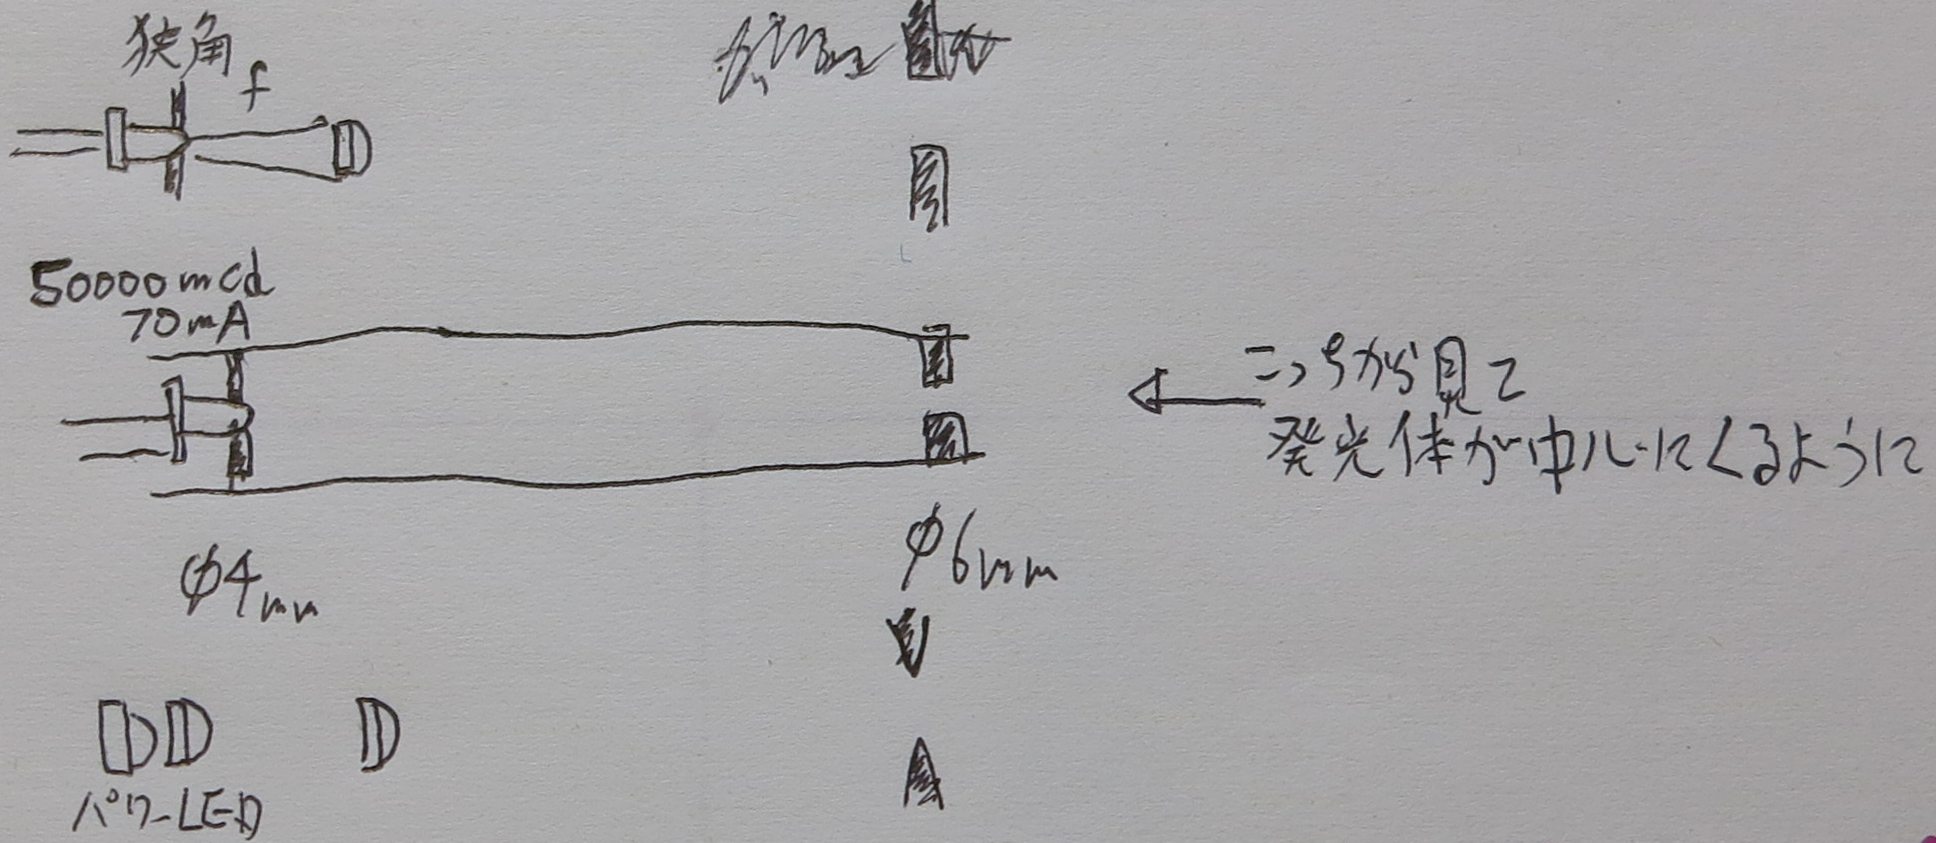 狭角
f
50000mcd
70mA
こっちから見て
発光体が中心にくるように
φ4mm
φ6mm
パワーLED